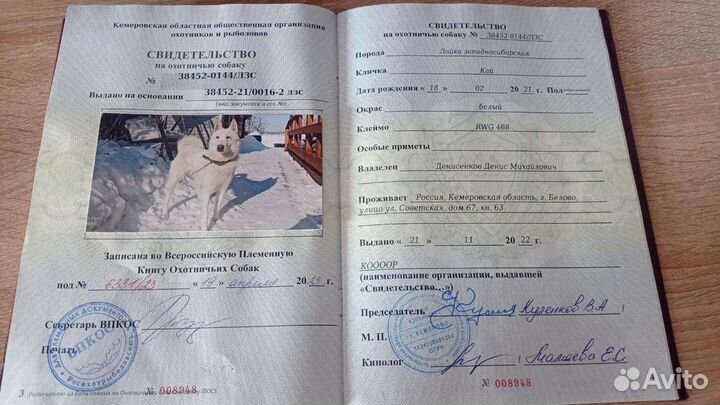 Кемеровская областная общественная организация
охотников и рыболовов
СВИДЕТЕЛЬСТВО
на охотничью собаку
№ 38452-0144/ЛЗС
Выдано на основании 38452-21/0016-2 лзс
(вид документа и его №)
Записана во Всероссийскую Племенную
Книгу Охотничьих Собак
под № 6321/23 « 19 » апреля 20 23 г.
Секретарь ВПКОС
Печать
ДЛЯ ПЛЕМЕННЫХ ДОКУМЕНТОВ
ВПКОС
Росохотрыболовсоюз
3
№ 008948
СВИДЕТЕЛЬСТВО
на охотничью собаку № 38452-0144/ЛЗС
Порода Лайка западносибирская
Кличка Кай
Дата рождения « 18 » 02 20 21 г. Пол
Окрас белый
Клеймо RWG 468
Особые приметы
Владелец Денисенков Денис Михайлович
Проживает Россия, Кемеровская область, г. Белово,
улица ул. Советская, дом 67, кв. 63
Выдано « 21 » 11 20 22 г.
КООООР
(наименование организации, выдавшей
«Свидетельство...»)
Председатель Куленков В.А
М. П.
г. КЕМЕРОВО
ОГРН
Кинолог Мамаева Е.С.
№ 008948
Avito